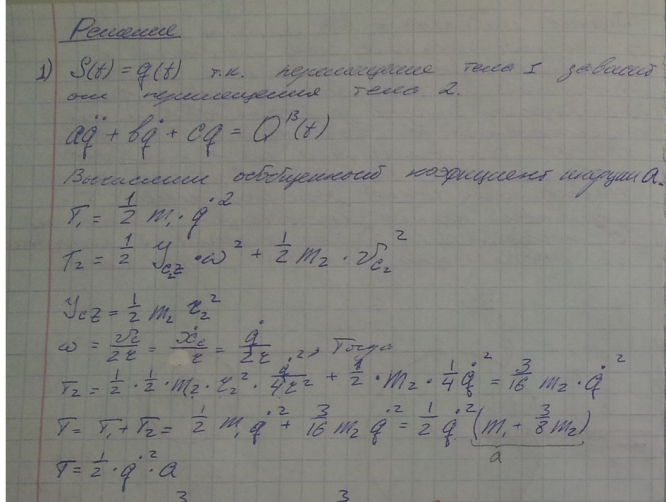 Решение
1) S(t) = q(t) т.к. перемещение тела 1 зависит
от перемещения тела 2.
aq̈ + bq̇ + cq = Qᴮ(t)
Вычислим обобщенный коэфициент инерции a.
T₁ = 1/2 m₁ · q̇²
T₂ = 1/2 Y_C₂z · ω² + 1/2 m₂ · v_C₂²
Y_Cz = 1/2 m₂ r₂²
ω = v_c/2r = ẋ_c/r = q̇/2r , Тогда
T₂ = 1/2 · 1/2 · m₂ · r₂² · q̇²/4r² + 1/2 · m₂ · 1/4 q̇² = 3/16 m₂ · q̇²
T = T₁ + T₂ = 1/2 m₁ q̇² + 3/16 m₂ q̇² = 1/2 q̇² (m₁ + 3/8 m₂)
a
T = 1/2 · q̇² · a
3 3